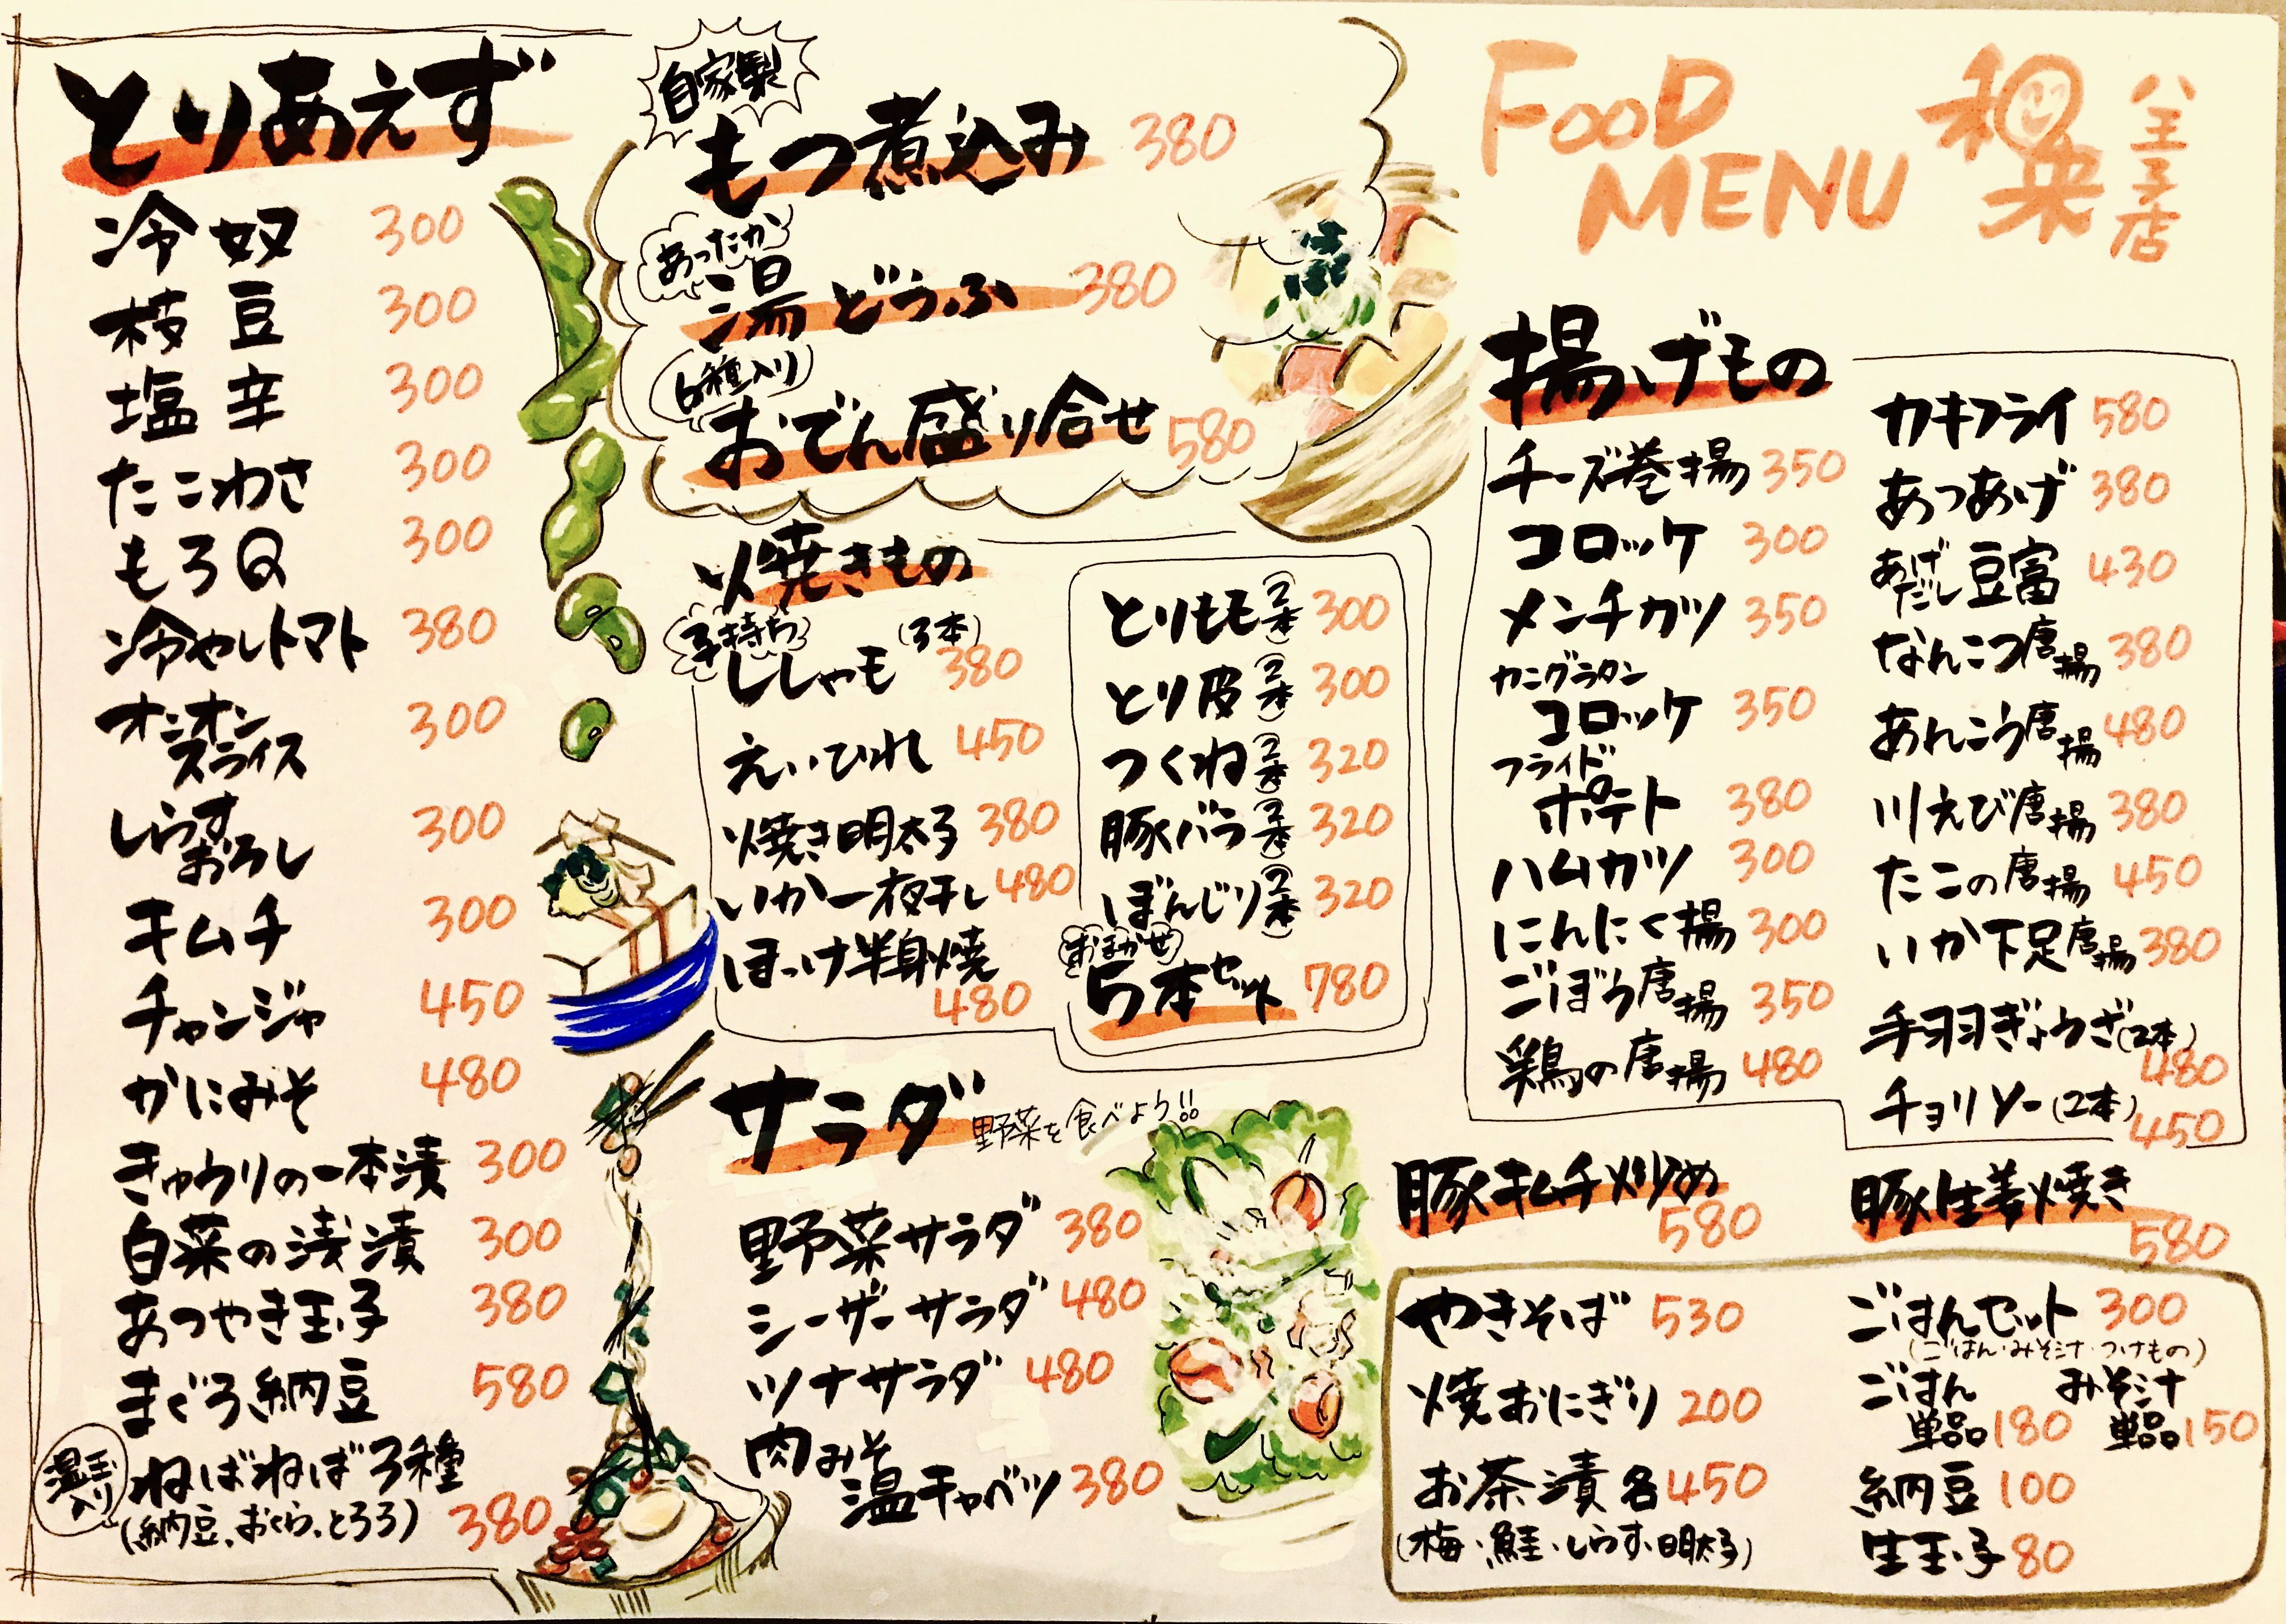 とりあえず
冷奴 300
枝豆 300
塩辛 300
たこわさ 300
もろQ 300
冷やしトマト 380
オニオン
スライス 300
しらす
おろし 300
キムチ 300
チャンジャ 450
かにみそ 480
きゅうりの一本漬 300
白菜の浅漬 300
あつやき玉子 380
まぐろ納豆 580
温玉入り
ねばねば3種
(納豆、おくら、とろろ) 380
自家製
もつ煮込み 380
あったか
湯どうふ 380
6種入り
おでん盛り合せ 580
焼きもの
子持ち
ししゃも (3本) 380
えいひれ 450
焼き明太子 380
いか一夜干し 480
ほっけ半身焼 480
とりもも(2本) 300
とり皮(2本) 300
つくね(2本) 320
豚バラ(2本) 320
ぼんじり(2本) 320
おまかせ
5本セット 780
サラダ 野菜を食べよう!!
野菜サラダ 380
シーザーサラダ 480
ツナサラダ 480
肉みそ
温キャベツ 380
FOOD
MENU
和来
八王子店
揚げもの
チーズ巻揚 350
コロッケ 300
メンチカツ 350
カニグラタン
コロッケ 350
フライド
ポテト 380
ハムカツ 300
にんにく揚 300
ごぼう唐揚 350
鶏の唐揚 480
カキフライ 580
あつあげ 380
あげだし豆富 430
なんこつ唐揚 380
あんこう唐揚 480
川えび唐揚 380
たこの唐揚 450
いか下足唐揚 380
手羽ぎょうざ(2本) 480
チョリソー(2本) 450
豚キムチ炒め 580
豚生姜焼き 580
やきそば 530
焼おにぎり 200
お茶漬 各450
(梅・鮭・しらす・明太子)
ごはんセット 300
(ごはん・みそ汁・つけもの)
ごはん
単品180
みそ汁
単品150
納豆 100
生玉子 80